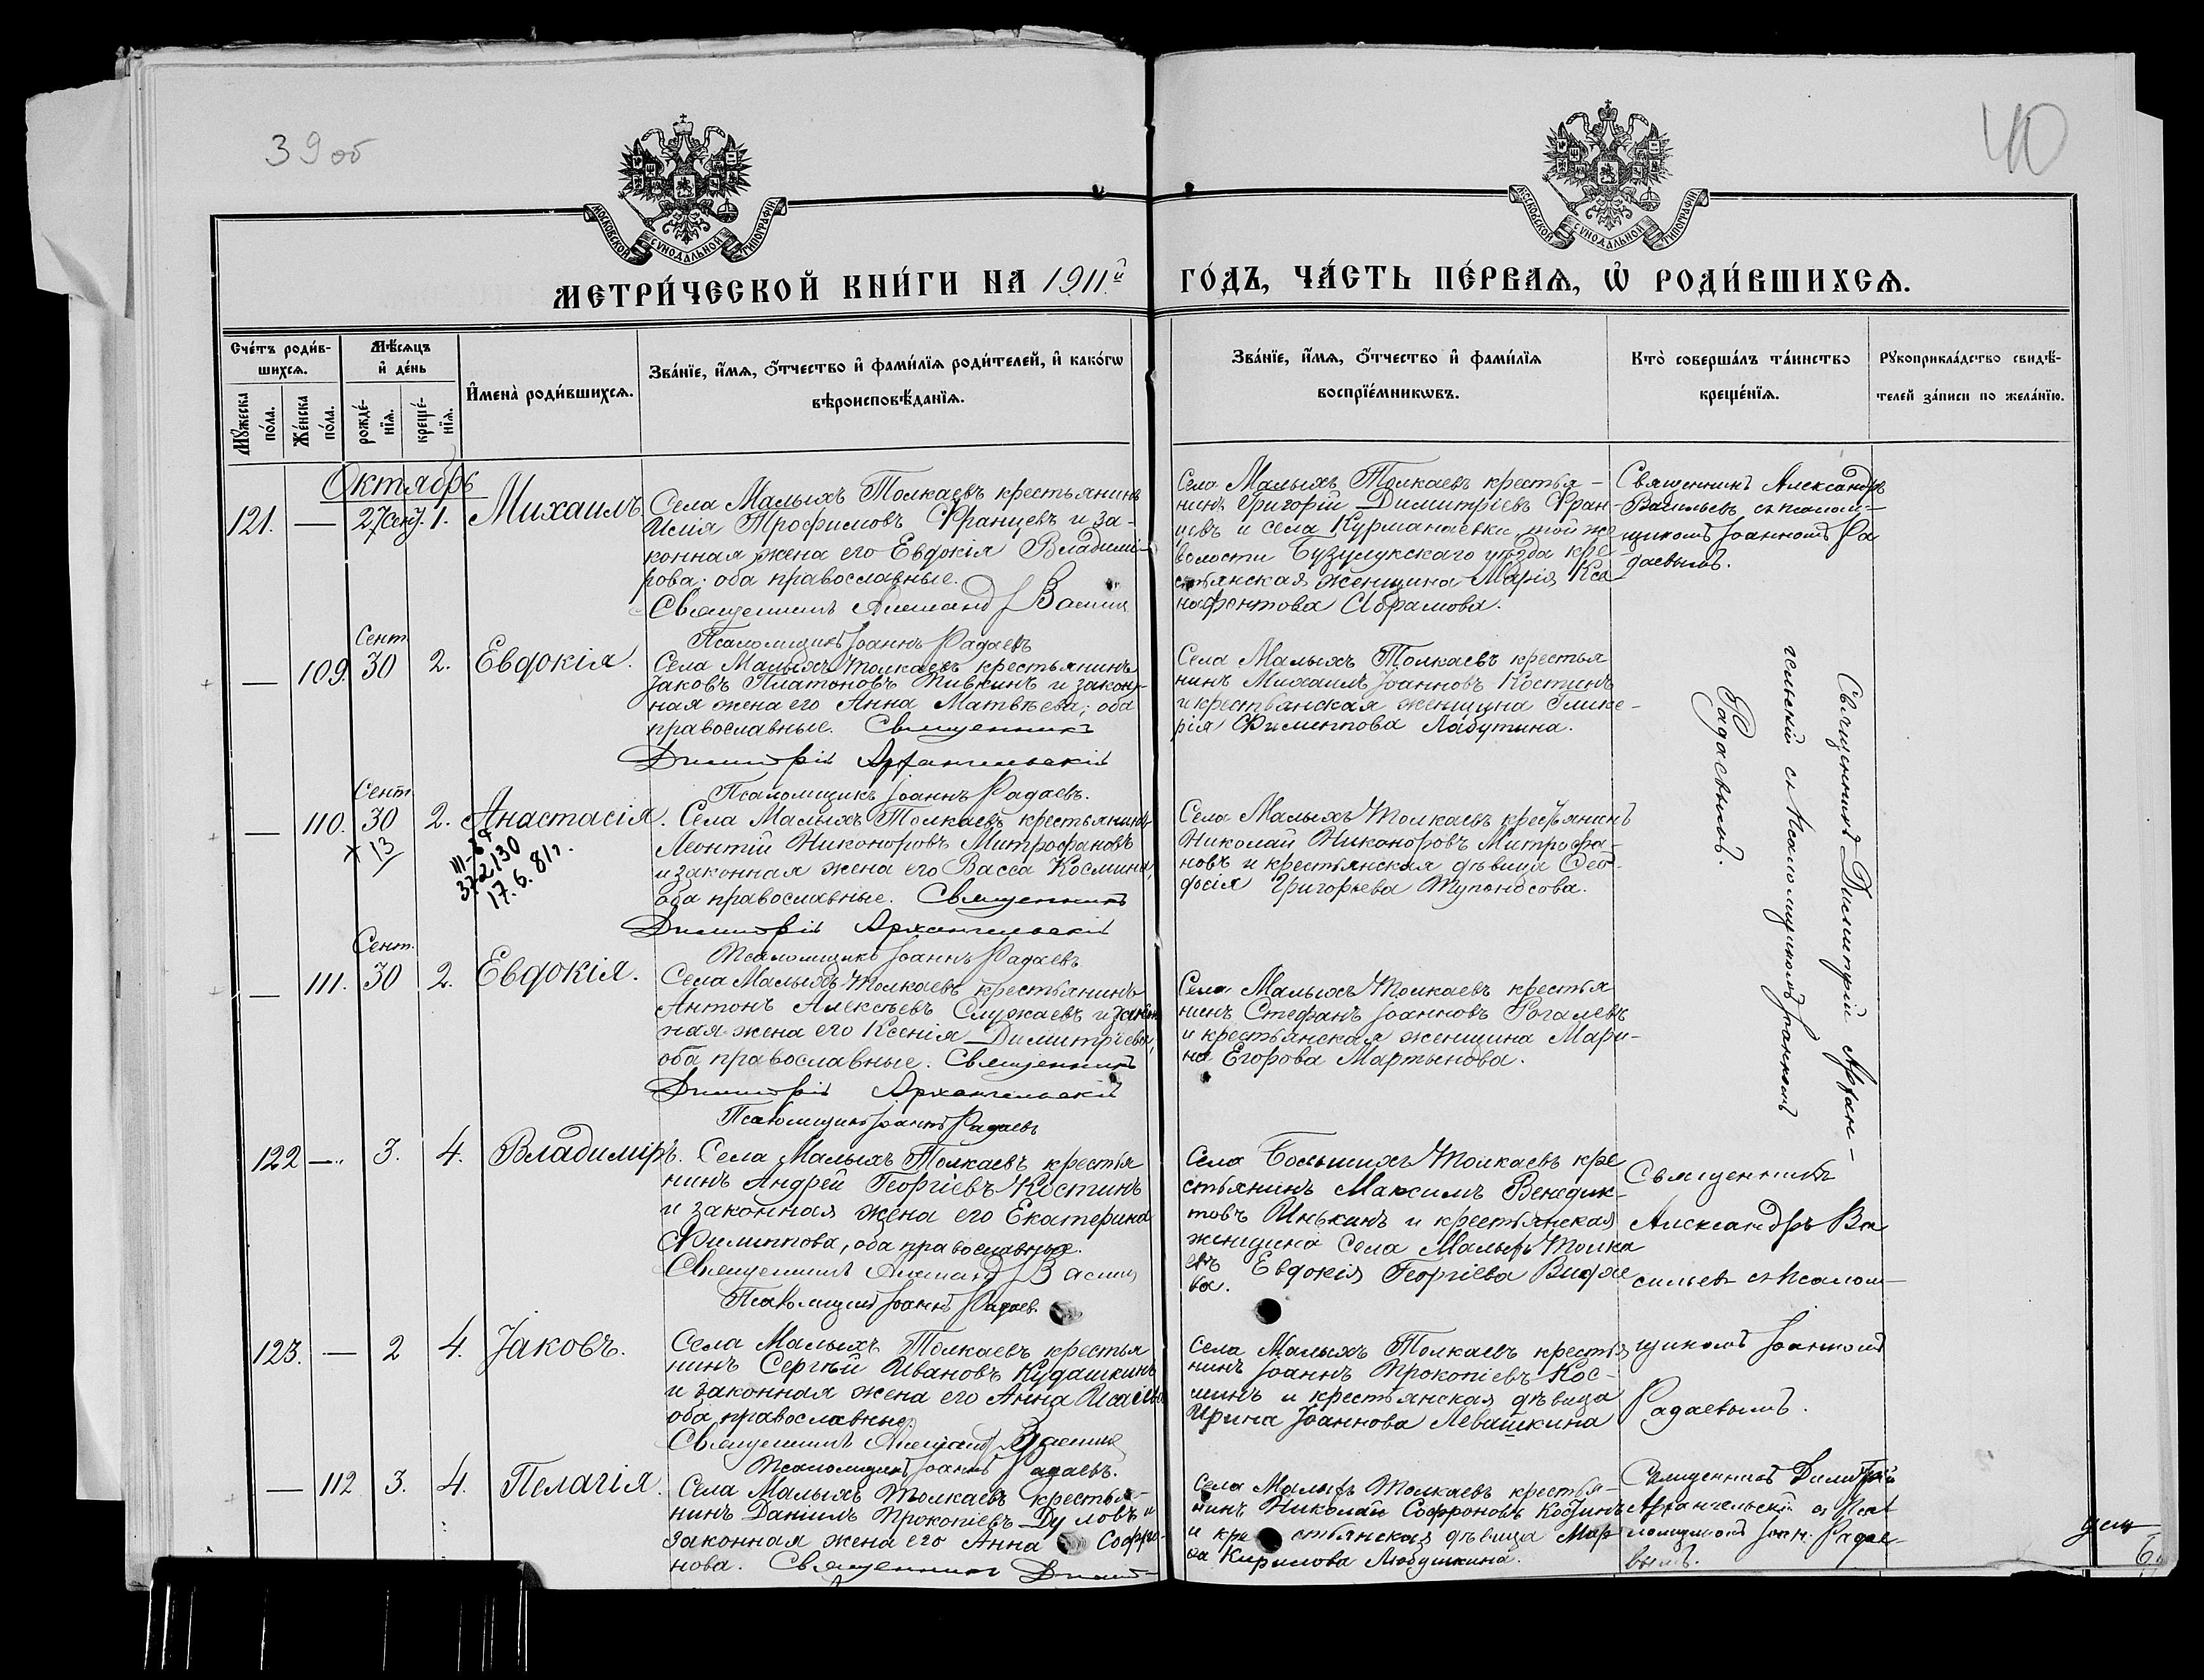 39 об
40
МОСКОВСКОЙ СѴНОДАЛЬНОЙ ТИПОГРАФІИ
МОСКОВСКОЙ СѴНОДАЛЬНОЙ ТИПОГРАФІИ
МЕТРИ́ЧЕСКОЙ КНИ́ГИ НА 1911й ГО́ДЪ, ЧА́СТЬ ПЕ́РВАѦ, Ѽ РОДИ́ВШИХСѦ.
Сче́тъ роди́в-
шихсѧ.
Мꙋжеска по́ла.
Же́нска по́ла.
Мѣ́сѧцъ и҆ де́нь
рожде́-нїѧ.
креще́-нїѧ.
И҆мена̀ роди́вшихсѧ.
Зва́нїе, и҆́мѧ, ѻ҆́тчество и҆ фами́лїѧ роди́телей, и҆ како́гѡ
вѣроисповѣ́данїѧ.
Зва́нїе, и҆́мѧ, ѻ҆́тчество и҆ фами́лїѧ
воспрїе́мникѡвъ.
Кто̀ соверша́лъ та́инство
креще́нїѧ.
Рꙋкоприкла́дство свидѣ́-
телей за́писи по жела́нїю.
Октябрь
121. — 27 Сент. 1. Михаилъ
Села Малыхъ Толкаевъ крестьянинъ
Илія Трофимовъ Францевъ и за-
конная жена его Евдокія Владими-
рова; оба православные.
Священникъ Александръ Васил
Псаломщикъ Іоаннъ Радаевъ
Села Малыхъ Толкаевъ крестья-
нинъ Григорій Димитріевъ Фран-
цевъ и села Курманаевки, той же
волости Бузулукскаго уѣзда кре-
стьянская женщина Марія Ксе
нофонтова Абрамова.
Священникъ Александръ
Васильевъ съ псалом-
щикомъ Іоанномъ Ра
даевымъ.
— 109. Сент. 30 2. Евдокія.
Села Малыхъ Толкаевъ крестьянинъ
Іаковъ Платоновъ Пивкинъ и закон-
ная жена его Анна Матвѣева; оба
православные. Священникъ
Димитрій Архангельскій
Псаломщикъ Іоаннъ Радаевъ.
Села Малыхъ Толкаевъ крестья
нинъ Михаилъ Іоанновъ Костинъ
и крестьянская женщина Глике-
рія Филиппова Лабутина.
Священникъ Димитрій Архан-
гельскій съ псаломщикомъ Іоанномъ
Радаевымъ.
— 110. Сент. 30 2. Анастасія.
× 13
III-
372130
17.6.81г.
Села Малыхъ Толкаевъ крестьянинъ
Леонтій Никоноровъ Митрофановъ
и законная жена его Васса Космина,
оба православные. Священникъ
Димитрій Архангельскій
Псаломщикъ Іоаннъ Радаевъ
Села Малыхъ Толкаевъ крестьянинъ
Николай Никаноровъ Митрофа-
новъ и крестьянская дѣвица Ѳео-
досія Григорьева Тупоносова.
— 111. Сент. 30 2. Евдокія.
Села Малыхъ Толкаевъ крестьянинъ
Антонъ Алексѣевъ Служаевъ и закон
ная жена его Ксенія Димитріева,
оба православные. Священникъ
Димитрій Архангельскій
Псаломщикъ Іоаннъ Радаевъ
Села Малыхъ Толкаевъ крестья
нинъ Стефанъ Іоанновъ Рогалевъ
и крестьянская женщина Мари-
на Егорова Мартынова.
122 — 3. 4. Владиміръ.
Села Малыхъ Толкаевъ крестья
нинъ Андрей Георгіевъ Костинъ
и законная жена его Екатерина
Филиппова, оба православные.
Священникъ Александръ Васил
Псаломщикъ Іоаннъ Радаев.
Села Большихъ Толкаевъ кре
стьянинъ Максимъ Венедик-
товъ Инькинъ и крестьянская
женщина села Малыхъ Толка
евъ Евдокія Георгіева Видяе
ва.
Священникъ
Александръ Ва
сильевъ съ псалом-
щикомъ Іоанномъ
Радаевымъ.
123. — 2 4. Іаковъ.
Села Малыхъ Толкаевъ крестья
нинъ Сергѣй Ивановъ Кудашкинъ
и законная жена его Анна Исаіева
оба православные.
Священникъ Александръ Васил
Псаломщикъ Іоаннъ Радаевъ.
Села Малыхъ Толкаевъ крестья
нинъ Іоаннъ Прокопіевъ Кос-
минъ и крестьянская дѣвица
Ирина Іоаннова Левашкина
— 112 3. 4. Пелагія.
Села Малыхъ Толкаевъ крестья-
нинъ Даніилъ Прокопіевъ и
законная жена его Анна Софро-
нова. Священникъ Димит-
Села Малыхъ Толкаевъ крестья-
нинъ Николай Софроновъ Костинъ
и крестьянская дѣвица Мар
Кирилова Любушкина.
Священникъ Димитрій
Архангельскій съ псал
ломщикомъ Іоан. Радае-
вымъ.